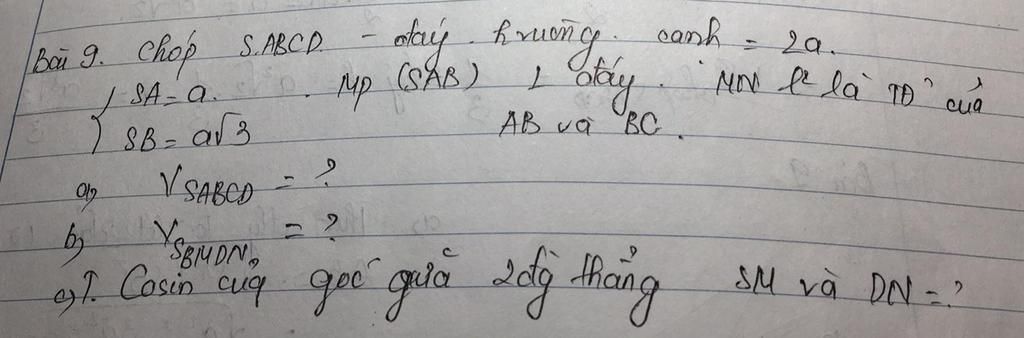 Bài 9. Chóp S.ABCD - đáy hvuông. cạnh = 2a.
{ SA = a. . Mp (SAB) ⊥ đáy. MN lll là TĐ' của
SB = a√3 AB và BC.
a, V SABCD = ?
b, V SBMDN = ?
c, T. Cosin của góc giữa 2 đg thẳng SM và DN = ?